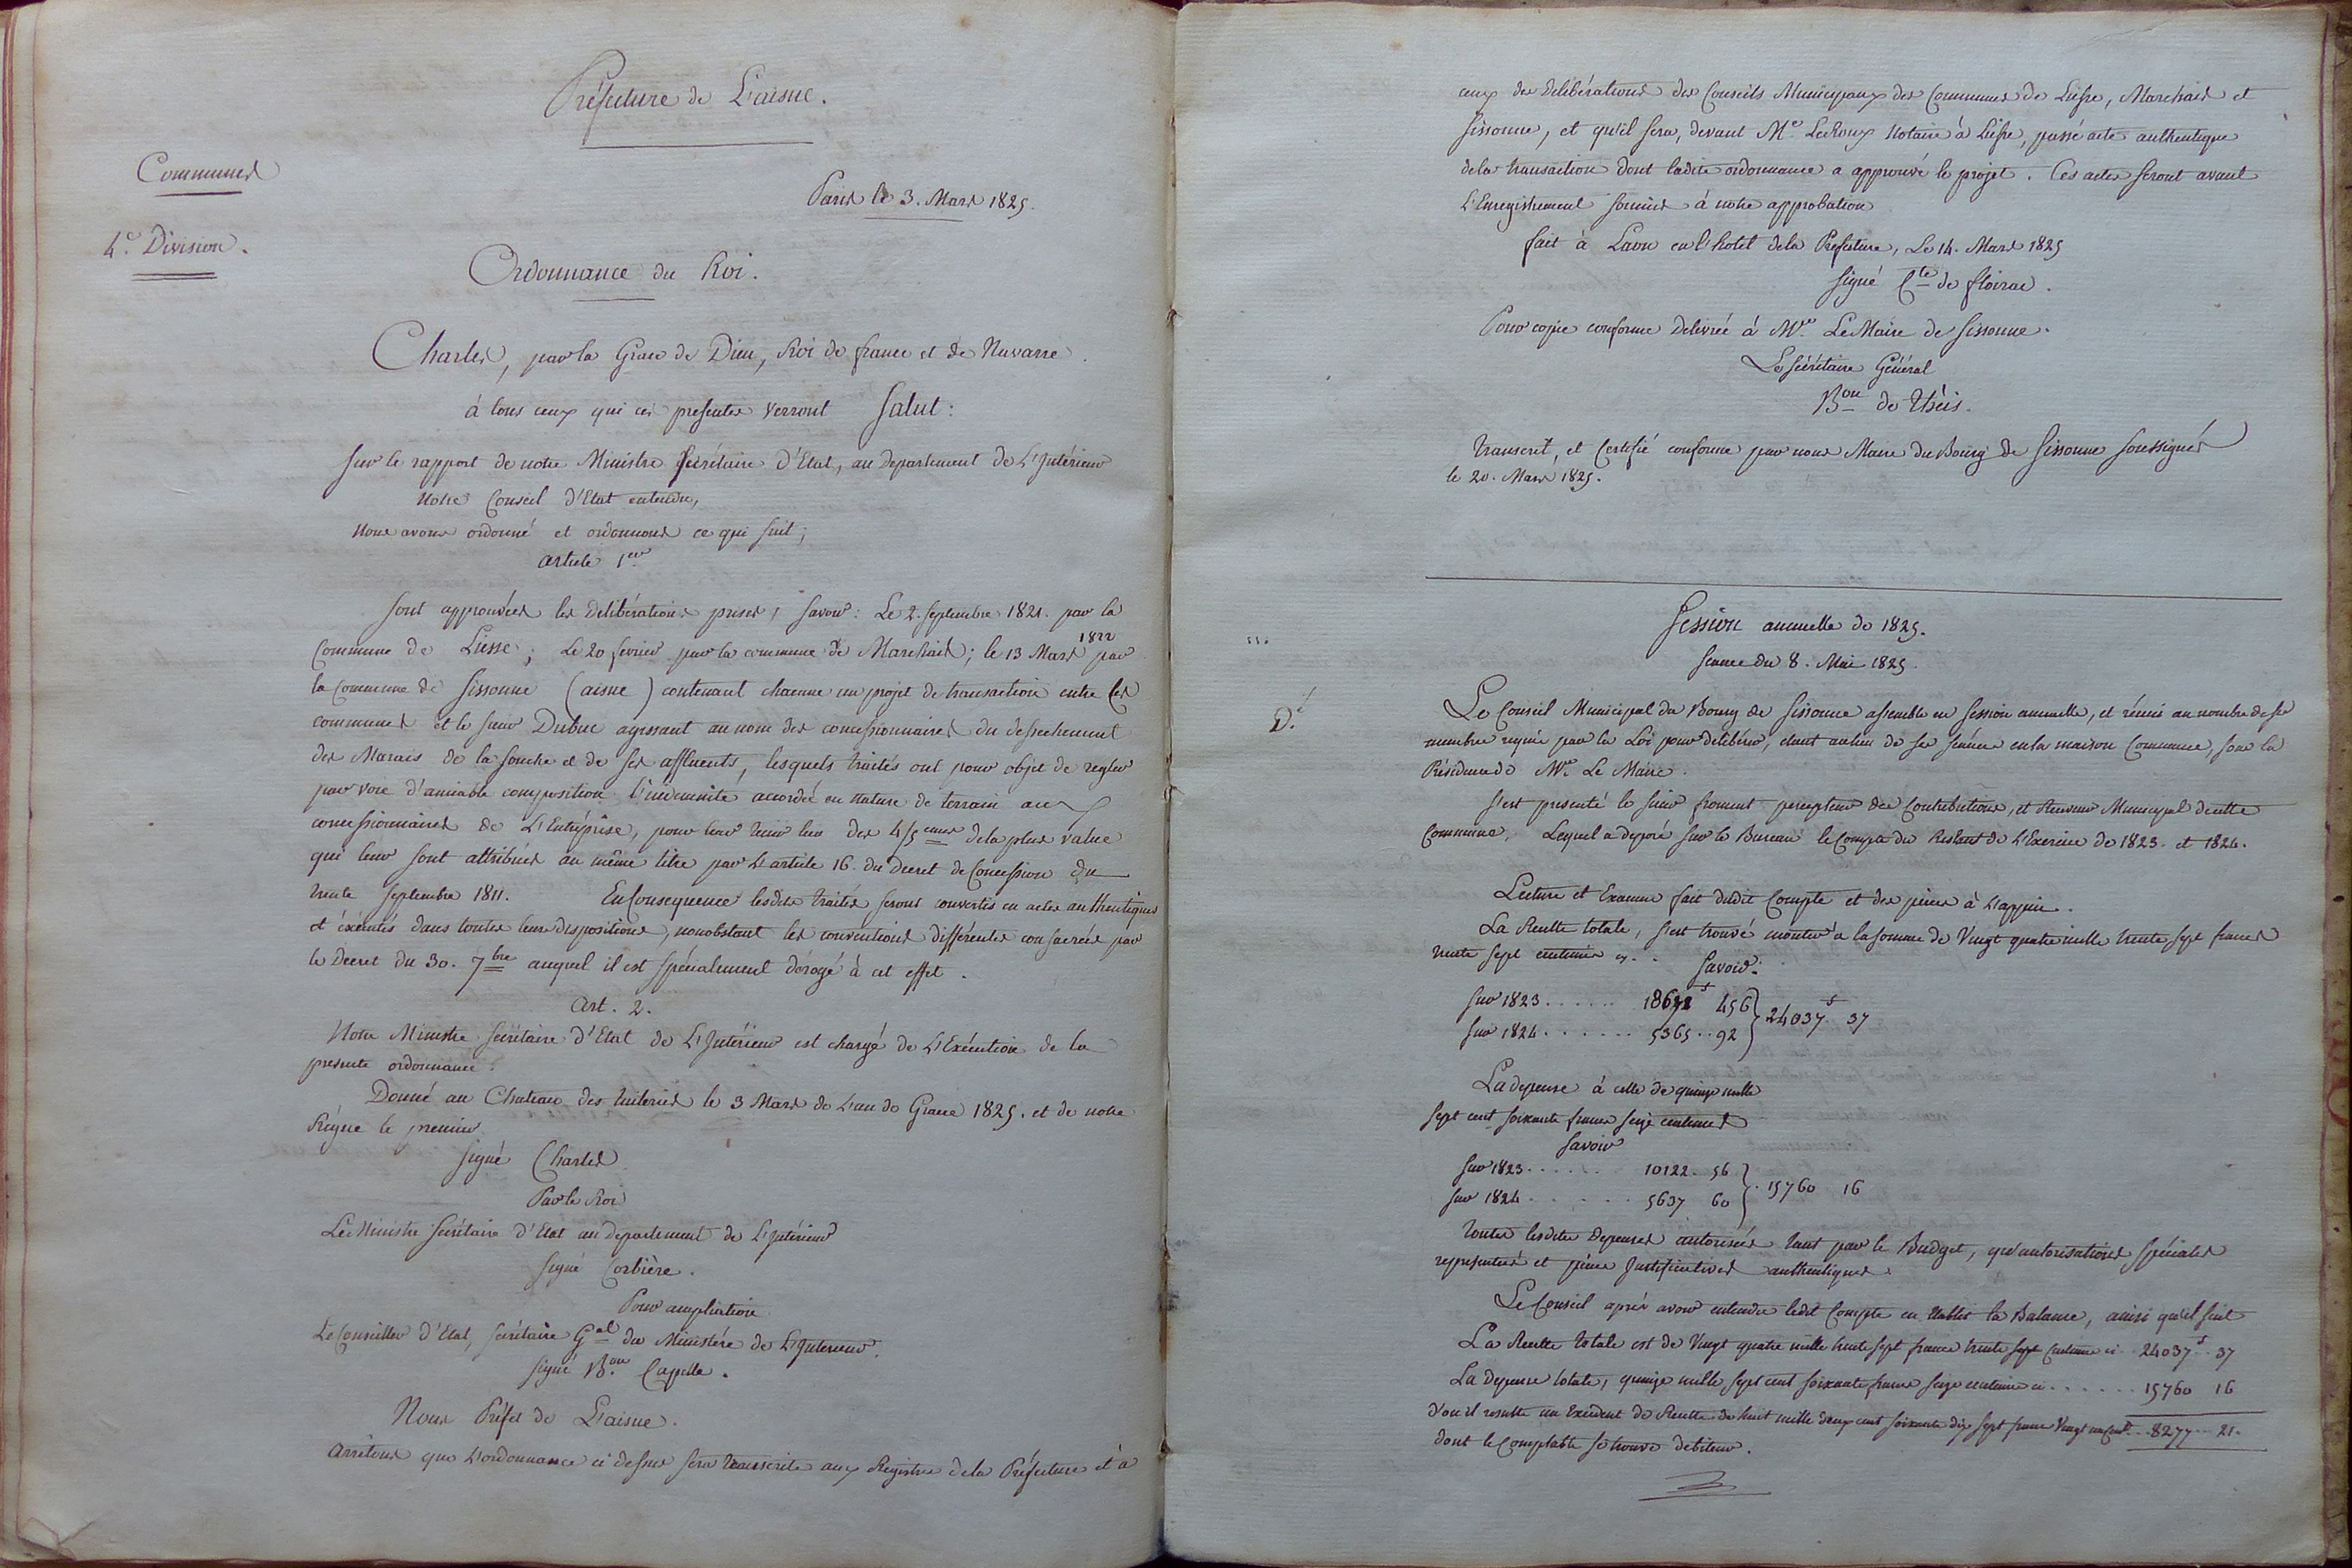 Préfecture de L'aisne.
Communes
4e. Division.
Paris le 3. Mars 1825.
Ordonnance du Roi.
Charles, par la Grace de Dieu, Roi de france et de Navarre.
à tous ceux qui ces presentes verront Salut:
Sur le rapport de notre Ministre Secrétaire d'Etat, au Departement de L'Intérieur
Notre Conseil d'Etat entendu,
Nous avons ordonné et ordonnons ce qui suit;
Article 1er
Sont approuvées les délibérations prises, Savoir: Le 2. Septembre 1821. par la
Commune de Liesse; Le 20 fevrier par la commune de Marchais; le 13 Mars 1822 par
la Commune de Sissonne (aisne) contenant chacune un projet de transaction entre les
communes et le sieur Dubuc agissant au nom des concessionnaires du dessechement
des Marais de la Souche et de ses affluents, lesquels traités ont pour objet de regler
par voie d'amiable composition l'indemnité accordée en nature de terrain aux
concessionnaires de L'Entréprise, pour leur tenir lieu des 4/5emes de la plus value
qui leur sont attribués au même titre par L'article 16. du Decret de Concession du
trente Septembre 1811. En Consequence lesdits traités seront convertis en actes authentiques
et éxécutés dans toutes leurs dispositions, nonobstant les conventions différentes consacrées par
le Decret du 30. 7bre auquel il est spécialement dérogé à cet effet.
Art. 2.
Notre Ministre Secrétaire d'Etat de L'Intérieur est chargé de L'Exécution de la
presente ordonnance.
Donné au Chateau des tuileries le 3 Mars de L'an de Grace 1825. et de notre
Régne le premier.
signé Charles
Par le Roi
Le Ministre Secrétaire d'Etat au departement de L'Intérieur
signé Corbière.
Pour ampliation
Le Conseiller d'Etat, secrétaire Gal du Ministére de L'Interieur.
signé Bon. Capelle.
Nous Préfet de L'aisne.
Arrêtons que L'ordonnance ci dessus sera transcrite aux Registres de la Préfecture et à
ceux des délibérations des Conseils Municipaux des Communes de Liesse, Marchais et
Sissonne, et qu'il sera, devant Me. LeRoux Notaire à Liesse, passé acte authentique
de la transaction dont ladite ordonnance a approuvé le projet. Ces actes seront avant
L'Enregistrement soumis à notre approbation
fait à Laon en l'hotel de la Prefecture, Le 14. Mars 1825
Signé Cte de floirac.
Pour copie conforme Delivrée à Mr. Le Maire de Sissonne.
Le Sécrétaire Général
Bon de Théis.
Transcrit, et Certifié conforme par nous Maire du Bourg de Sissonne Soussigné
le 20. Mars 1825.
Session annuelle de 1825.
Séance du 8. Mai 1825.
D.
Le Conseil Municipal du Bourg de Sissonne assemblé en Session annuelle, et réuni au nombre de ses
membres requis par la Loi pour délibérer, étant au lieu de ses séances en la maison Commune, sous la
Présidence de Mr. Le Maire.
S'est presenté le sieur froment percepteur des Contributions, et Receveur Municipal de cette
Commune, Lequel a deposé sur le Bureau le Compte du Restant de L'Exercice de 1823. et 1824.
Lecture et Examen fait dudit Compte et des pièces à L'appui.
La Recette totale, s'est trouvé monter à la somme de Vingt quatre mille trente sept francs
trente sept centimes ci. .
Savoir.
Sur 1823. . . . . . 18672f 456 } 24037f 37
Sur 1824. . . . . . . 5365 .. 92
La depense à celle de quinze mille
sept cent soixante francs seize centimes
Savoir
Sur 1823. . . . . . 10122. 56 } . 15760 16
Sur 1824 . . . . . . 5637 60
toutes lesdites depenses autorisées tant par le Budget, qu'autorisations Spéciales
representées et pièces justificatives authentiques.
Le Conseil aprés avoir entendu ledit Compte en établit la Balance, ainsi qu'il suit
La Recette totale est de Vingt quatre mille trente sept francs trente sept Centimes ci .. 24037f .. 37
La depense totale, quinze mille sept cent soixante francs seize centimes ci . . . . . . 15760 16
d'ou il resulte un Excédent de Recette de huit mille deux cent soixante dix sept francs Vingt un Cent. .. 8277 .. 21.
dont le Comptable se trouve debiteur.